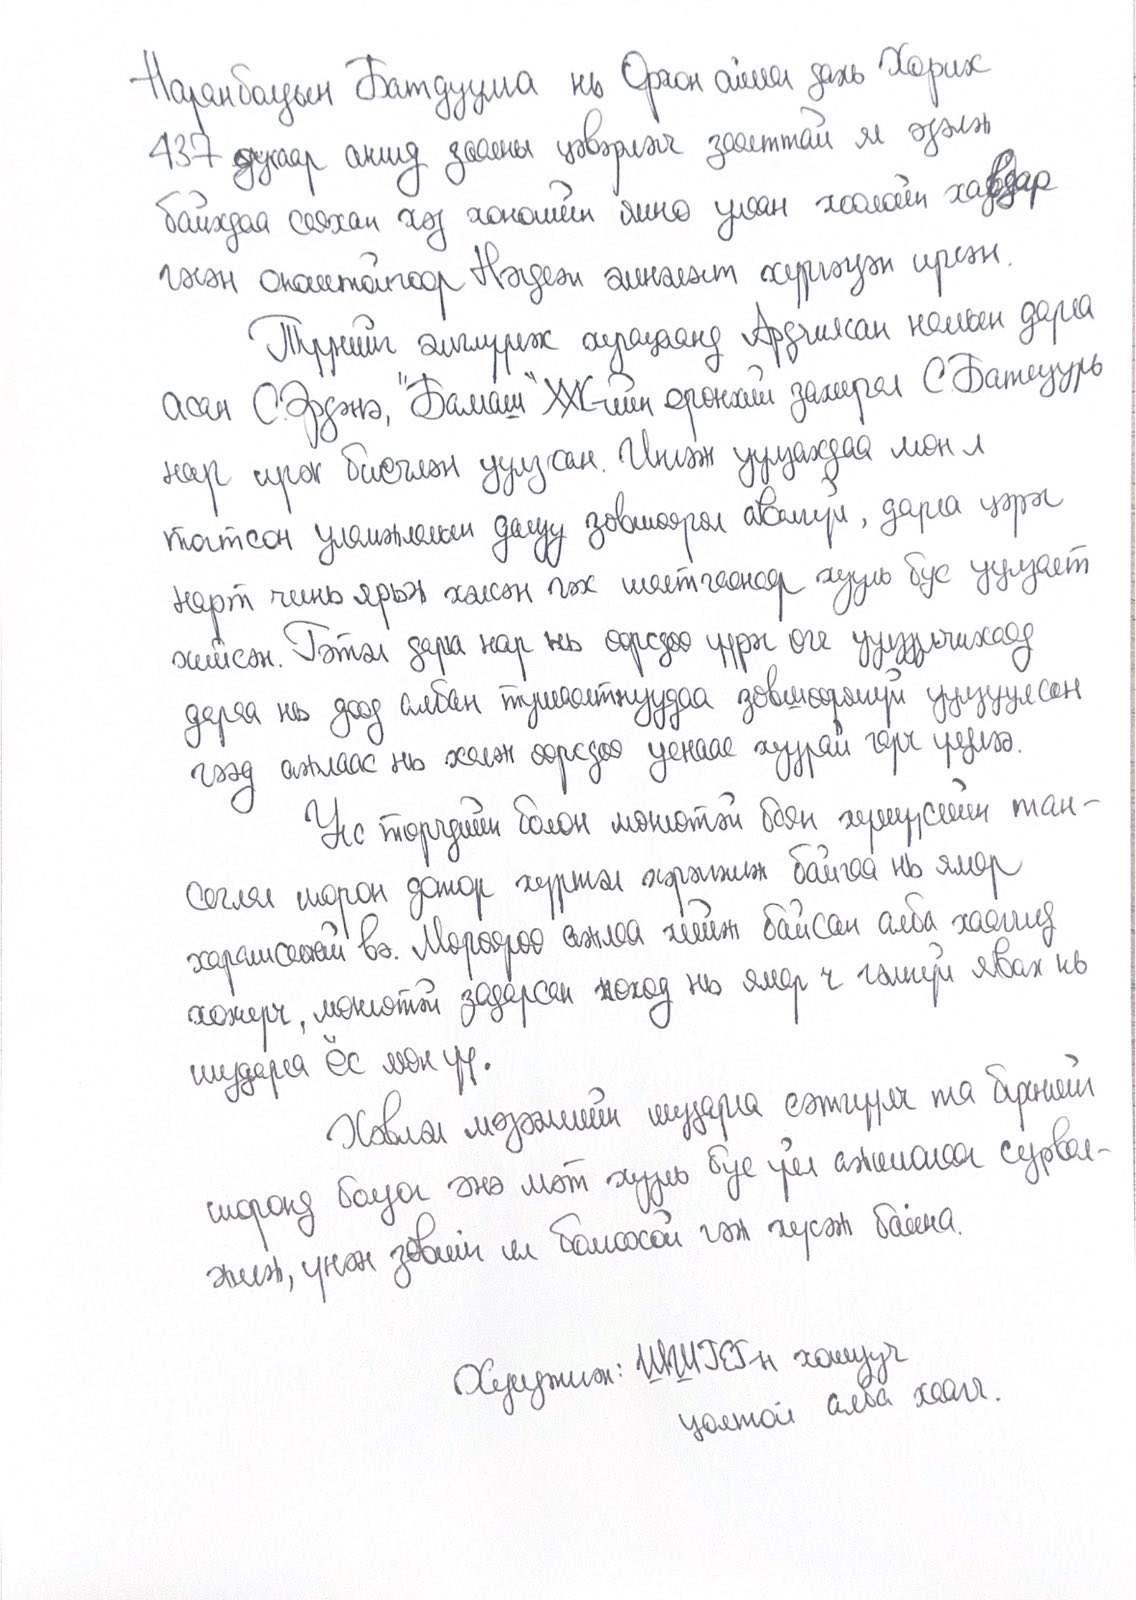 Наранбаатарын Батдуулма нь Орхон аймаг дахь Хорих
437 дугаар ангид заалны цэвэрлэгч заалттай ял эдэлж
байхдаа саяхан хэд хоногийн өмнө улаан хоолойн хавдар
гэсэн оноштойгоор Нэгдсэн эмнэлэгт хүргэгдэн ирсэн.
Түүнийг эмчлүүлж хугацаанд Ардчилсан намын дарга
асан С.Эрдэнэ, "Бамаш" ХХК-ийн ерөнхий захирал С.Батмуурь
нар ирж биечлэн уулзсан. Ингэж уулзахдаа мөн л
тогтсон уламжлалын дагуу зөвшөөрөл авалгүй, дарга цэрэг
нартчинь ярьж хэлсэн гэх шалтгаанаар хууль бус уулзалт
хийсэн. Гэтэл дарга нар нь өөрсдөө үүрэг өгч уулзуулчихаад
дараа нь доод албан тушаалтнуудаа зөвшөөрөлгүй уулзуулсан
гээд ажлаас нь хөөж өөрсдөө уснаас хуурай гарч үлдлээ.
Улс төрчдийн болон мөнгөтэй баян хүмүүсийн тан-
саглал шорон дотор хүртэл хэрэгжиж байгаа нь ямар
харамсалтай вэ. Мөрөөрөө ажлаа хийж байсан алба хаагчид
хохирч, мөнгөтэй задарсан нөхөд нь ямар ч гэмгүй явах нь
шударга ёс мөн үү.
Хэвлэл мэдээллийн шударга сэтгүүлч та бүхнийг
шоронд болдог энэ мэт хууль бус үйл ажиллагааг сурвал-
жилж, үнэн зөвийг ил болгоосой гэж хүсэж байна.
Хүндэтгэж: ШШГЕГ-н хошууч
цолтой алба хаагч.